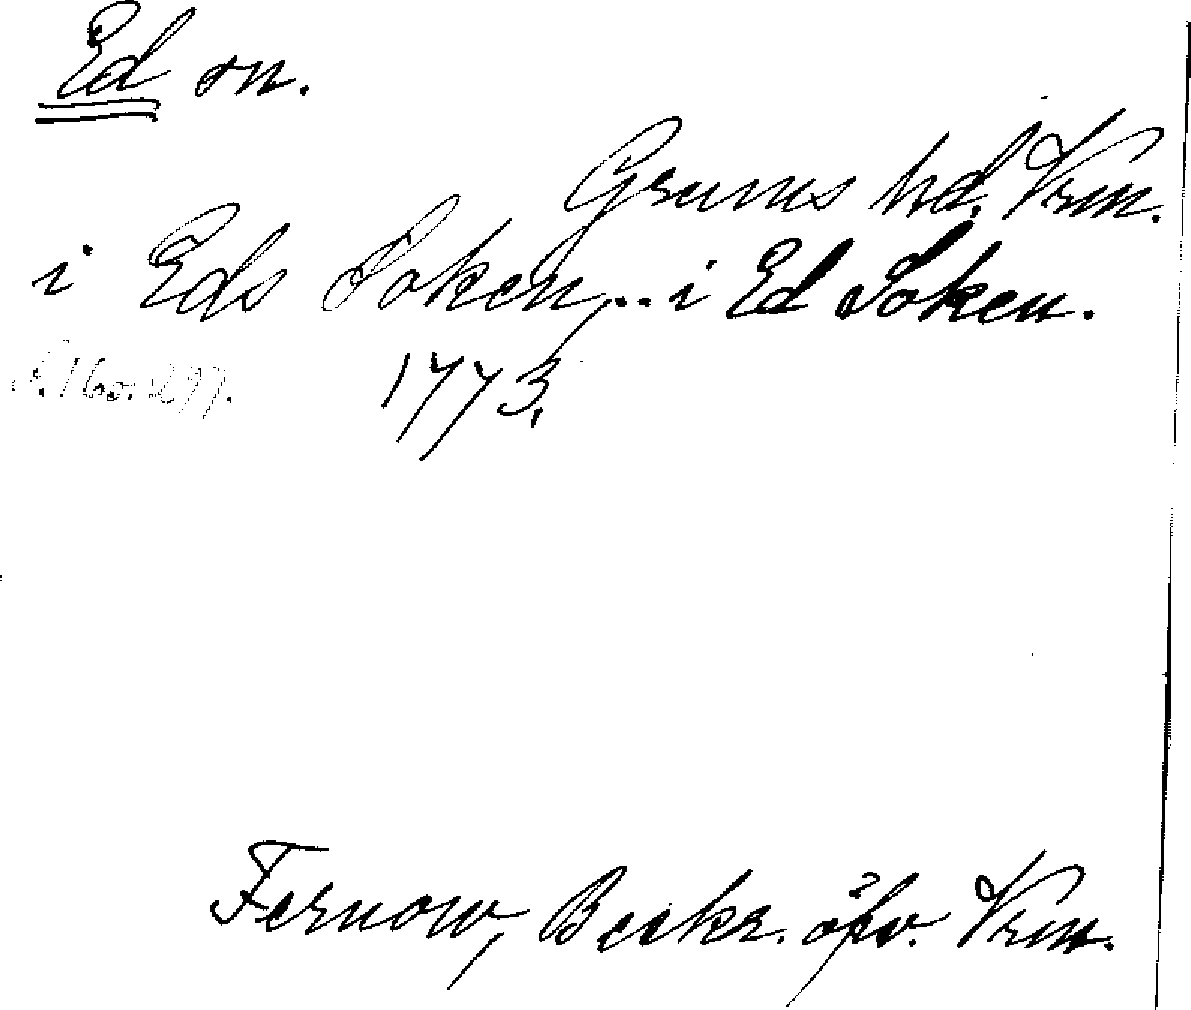 Ed sn.
Grums hd. Vrm.
i Eds Soken, .. i Ed Soken.
s. 160. 297.
1773.
Fernow, Beskr. öfv. Vrm.